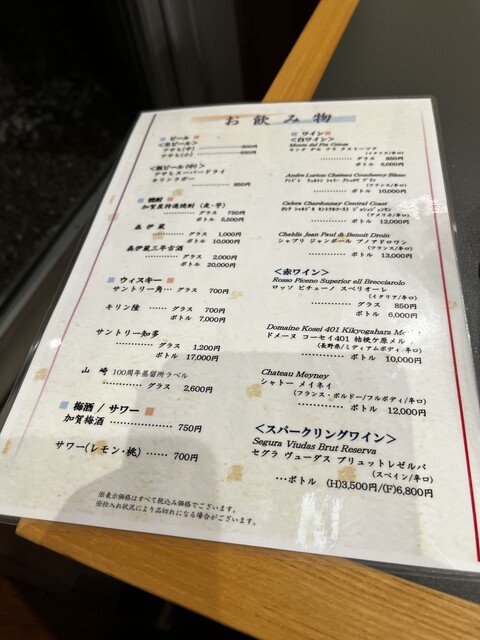 お飲み物
ビール
<生ビール>
アサヒ(中)
アサヒ(小)
<瓶ビール(中)>
アサヒスーパードライ
キリンラガー
850円
焼酎
加賀屋特選焼酎 (麦・芋)
グラス 750円
ボトル 5,500円
森伊蔵
グラス 1,000円
ボトル 10,000円
森伊蔵三年古酒
グラス 2,000円
ボトル 20,000円
ウィスキー
サントリー角… グラス 700円
キリン陸 …… グラス 700円
ボトル 7,000円
サントリー知多
グラス 1,200円
ボトル 17,000円
山崎 100周年蒸留所ラベル
グラス 2,600円
梅酒 / サワー
加賀梅酒 ………… 750円
サワー(レモン・桃) …… 700円
※表示価格はすべて税込み価格でございます。
※仕入れ状況により品切れになる場合がございます。
ワイン
<白ワイン>
(イタリア/辛口)
グラス 850円
ボトル 6,000円
(フランス/辛口)
ボトル 10,000円
Calera Chardonnay Central Coast
(アメリカ/辛口)
ボトル 12,000円
Chablis Jean Paul & Benoit Droin
シャブリ ジャンポール ブノアドロワン
(フランス/辛口)
ボトル 13,000円
<赤ワイン>
Rosso Piceno Superior eIl Brecciarolo
ロッソ ピチェーノ スペリオーレ
(イタリア/辛口)
グラス 850円
ボトル 6,000円
Domaine Kosei 401 Kikyogahara
ドメーヌ コーセイ401 桔梗ケ原メル
(長野県/ミディアムボディ/辛口)
ボトル 10,000円
Chateau Meyney
シャトー メイネイ
(フランス・ボルドー/フルボディ/辛口)
ボトル 12,000円
<スパークリングワイン>
Segura Viudas Brut Reserva
セグラ ヴューダス ブリュットレゼルバ
(スペイン/辛口)
…ボトル (H)3,500円/(F)6,800円